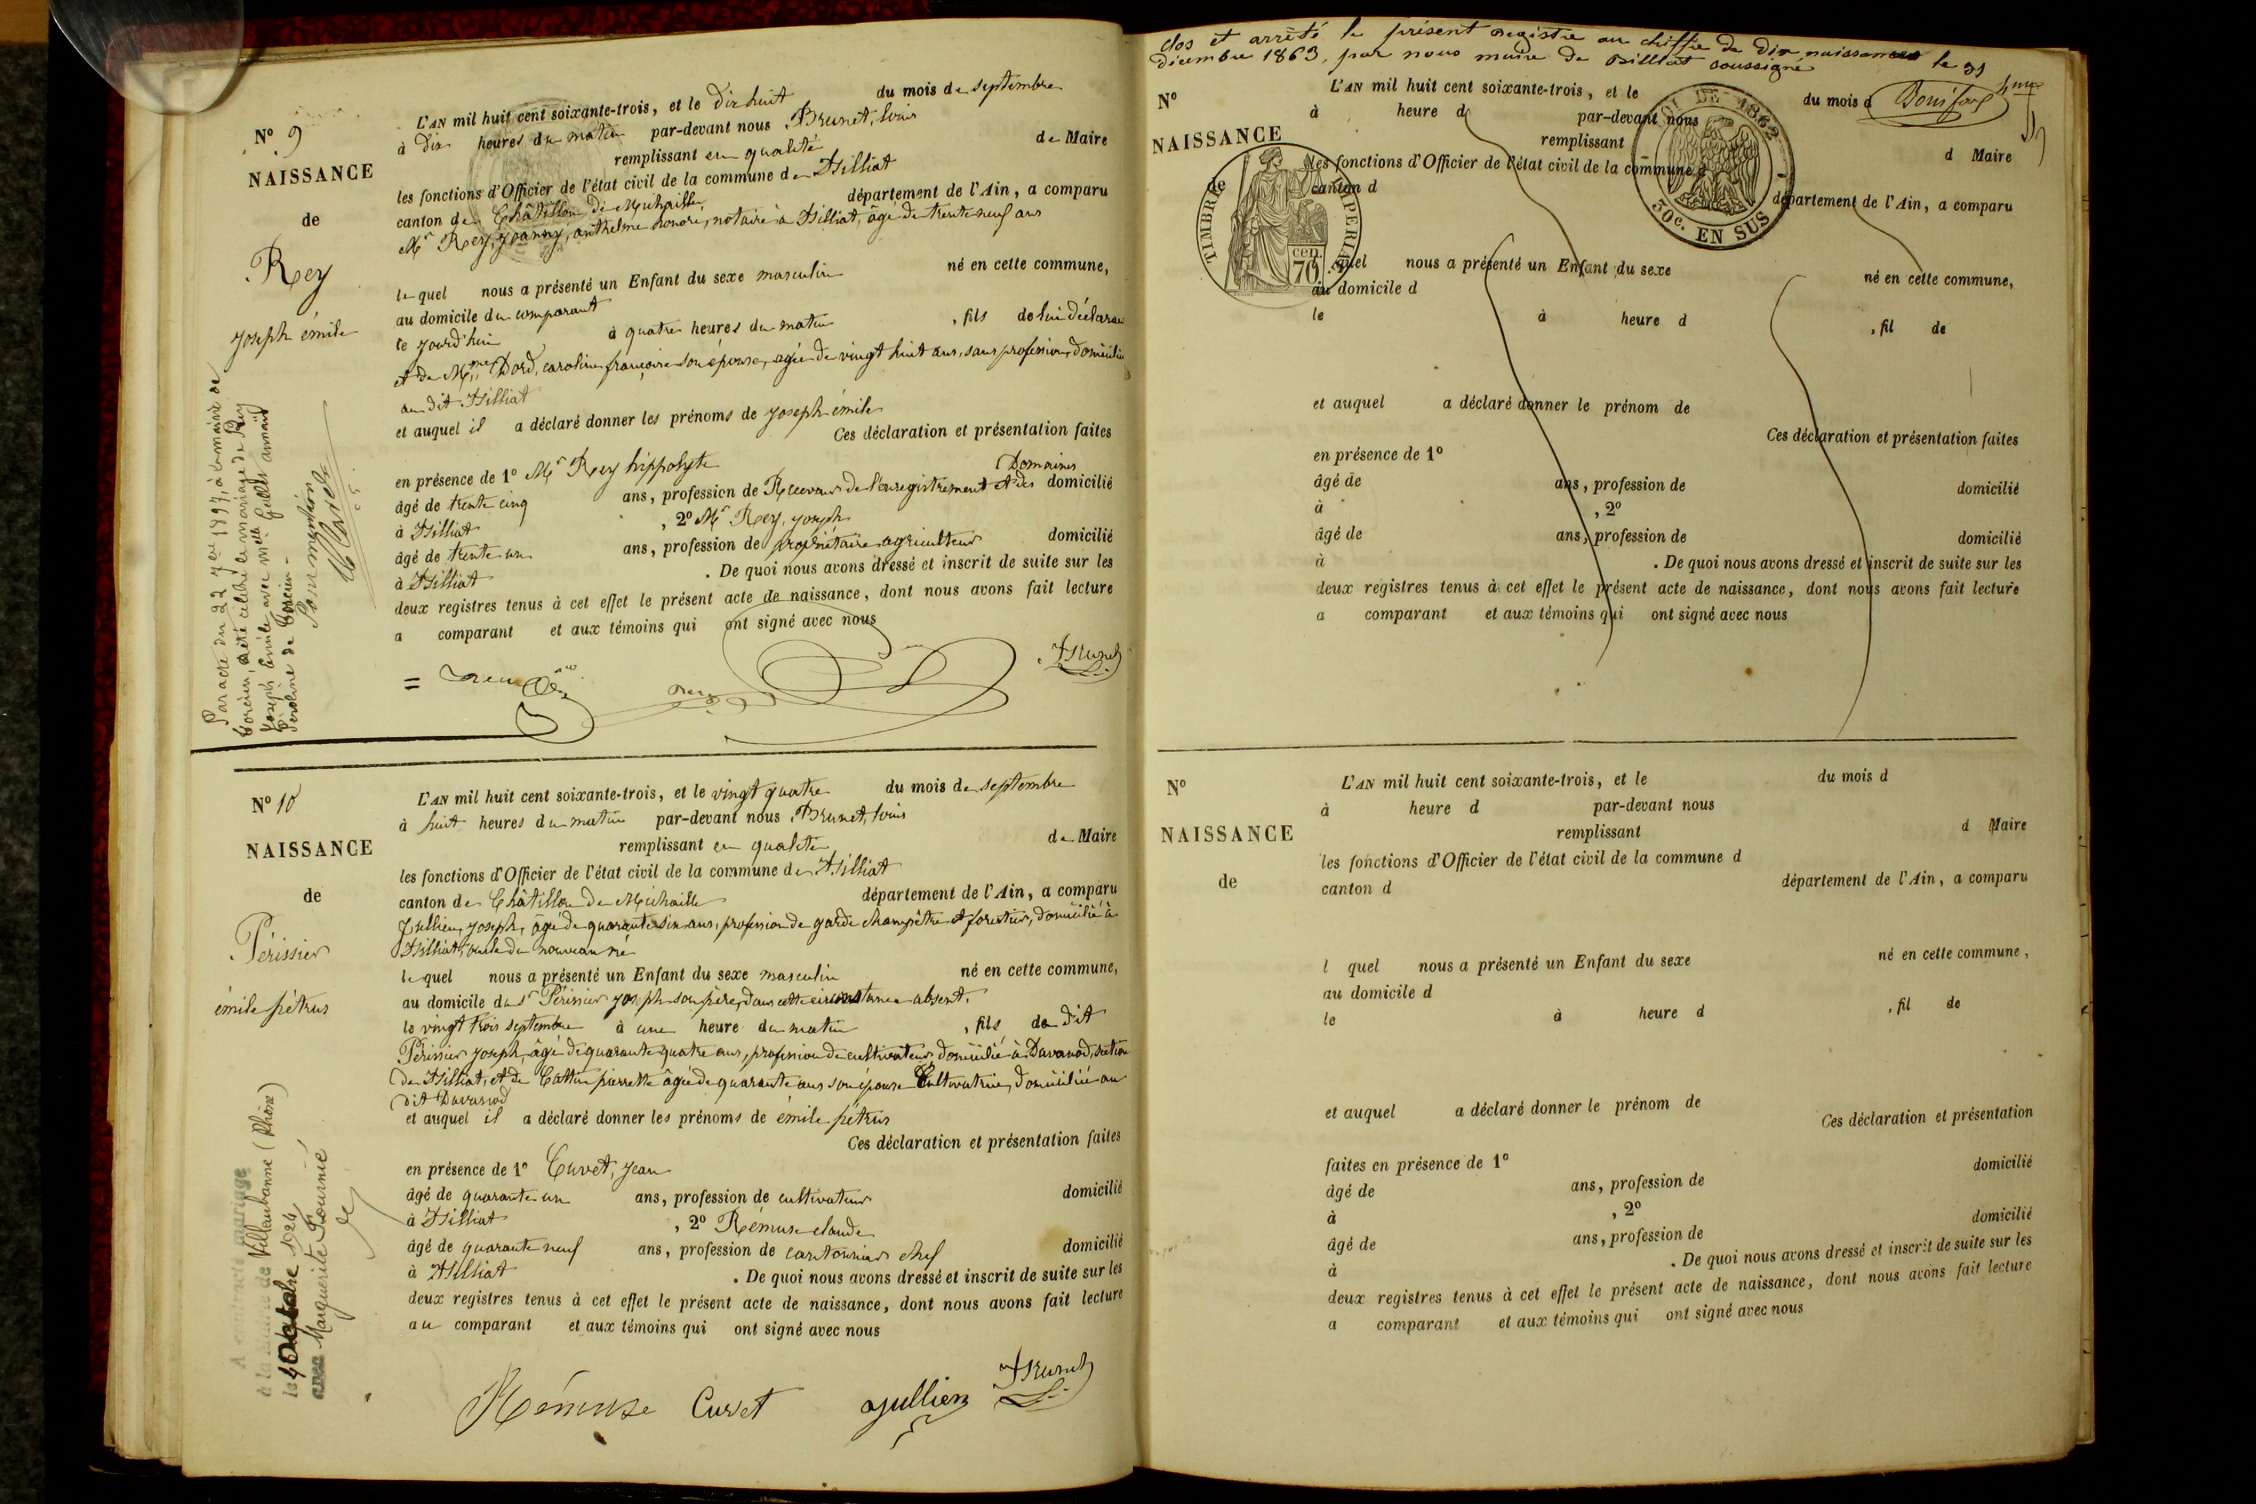 N° 9
NAISSANCE
de
Rey
joseph émile
L'AN mil huit cent soixante-trois, et le dix huit du mois de septembre
à dix heures du matin par-devant nous Brunet, louis
remplissant en qualité de Maire
les fonctions d'Officier de l'état civil de la commune de Billiat
canton de Châtillon de Michaille département de l'Ain, a comparu
Mr Rey, joanny, anthelme honoré, notaire à Billiat, âgé de trente neuf ans
lequel nous a présenté un Enfant du sexe masculin né en cette commune,
au domicile du comparant
ce jourd'hui à quatre heures du matin, fils de lui déclarant
et de Mme Dord, caroline françoise son épouse, agée de vingt huit ans, sans profession, domiciliée
au dit Billiat
et auquel il a déclaré donner les prénoms de joseph émile
Ces déclaration et présentation faites
en présence de 1° Mr Rey hippolyte
Domaines
âgé de trente cinq ans, profession de Receveur de l'enregistrement et des domicilié
à Billiat, 2° Mr Rey, joseph
âgé de trente un ans, profession de propriétaire agriculteur domicilié
à Billiat. De quoi nous avons dressé et inscrit de suite sur les
deux registres tenus à cet effet le présent acte de naissance, dont nous avons fait lecture
a comparant et aux témoins qui ont signé avec nous
Brunet
Par acte du 22 1897, à la mairie de
Corcieu, a été célébré le mariage de Rey
Joseph Emile avec Melle
Péroline de Corcieu -
Pour mention
N° 10
NAISSANCE
de
Périssier
émile pétrus
L'AN mil huit cent soixante-trois, et le vingt quatre du mois de septembre
à huit heures du matin par-devant nous Brunet, louis
remplissant en qualité de Maire
les fonctions d'Officier de l'état civil de la commune de Billiat
canton de Châtillon de Michaille département de l'Ain, a comparu
Jullien, joseph, âgé de quarante six ans, profession de garde champêtre et forestier, domicilié à
Billiat, oncle du nouveau né
lequel nous a présenté un Enfant du sexe masculin né en cette commune,
au domicile du sr Périssier joseph son père, dans cette circonstance absent.
le vingt trois septembre à une heure du matin, fils de dit
Périssier joseph, âgé de quarante quatre ans, profession de cultivateur, domicilié à Davanod, section
de Billiat, et de Cottin pierrette âgée de quarante ans son épouse Cultivatrice, domiciliée au
dit Davanod
et auquel il a déclaré donner les prénoms de émile pétrus
Ces déclaration et présentation faites
en présence de 1° Curvet, jean
âgé de quarante un ans, profession de cultivateur domicilié
à Billiat, 2° Rémuse claude
âgé de quarante neuf ans, profession de cantonnier chef domicilié
à Billiat. De quoi nous avons dressé et inscrit de suite sur les
deux registres tenus à cet effet le présent acte de naissance, dont nous avons fait lecture
au comparant et aux témoins qui ont signé avec nous
Rémuse Curvet Jullien Brunet
A contracté mariage
à la mairie de Villeurbanne (Rhône)
le 4 Octobre 1924
avec Marguerite Fournié
clos et arrêté le présent registre au chiffre de dix naissances le 31
décembre 1863, par nous maire de Billiat soussigné
N°
NAISSANCE
de
L'AN mil huit cent soixante-trois, et le du mois d
à heure d par-devant nous
remplissant d Maire
les fonctions d'Officier de l'état civil de la commune d
canton d département de l'Ain, a comparu
TIMBRE IMPERIAL
cen. 70
1862
30c. EN SUS
l quel nous a présenté un Enfant du sexe né en cette commune,
au domicile d
le à heure d, fil de
et auquel a déclaré donner le prénom de
Ces déclaration et présentation faites
en présence de 1°
âgé de ans, profession de domicilié
à, 2°
âgé de ans, profession de domicilié
à. De quoi nous avons dressé et inscrit de suite sur les
deux registres tenus à cet effet le présent acte de naissance, dont nous avons fait lecture
a comparant et aux témoins qui ont signé avec nous
N°
NAISSANCE
de
L'AN mil huit cent soixante-trois, et le du mois d
à heure d par-devant nous
remplissant d Maire
les fonctions d'Officier de l'état civil de la commune d
canton d département de l'Ain, a comparu
l quel nous a présenté un Enfant du sexe né en cette commune,
au domicile d
le à heure d, fil de
et auquel a déclaré donner le prénom de
Ces déclaration et présentation
faites en présence de 1° domicilié
âgé de ans, profession de
à, 2°
âgé de ans, profession de domicilié
à. De quoi nous avons dressé et inscrit de suite sur les
deux registres tenus à cet effet le présent acte de naissance, dont nous avons fait lecture
a comparant et aux témoins qui ont signé avec nous